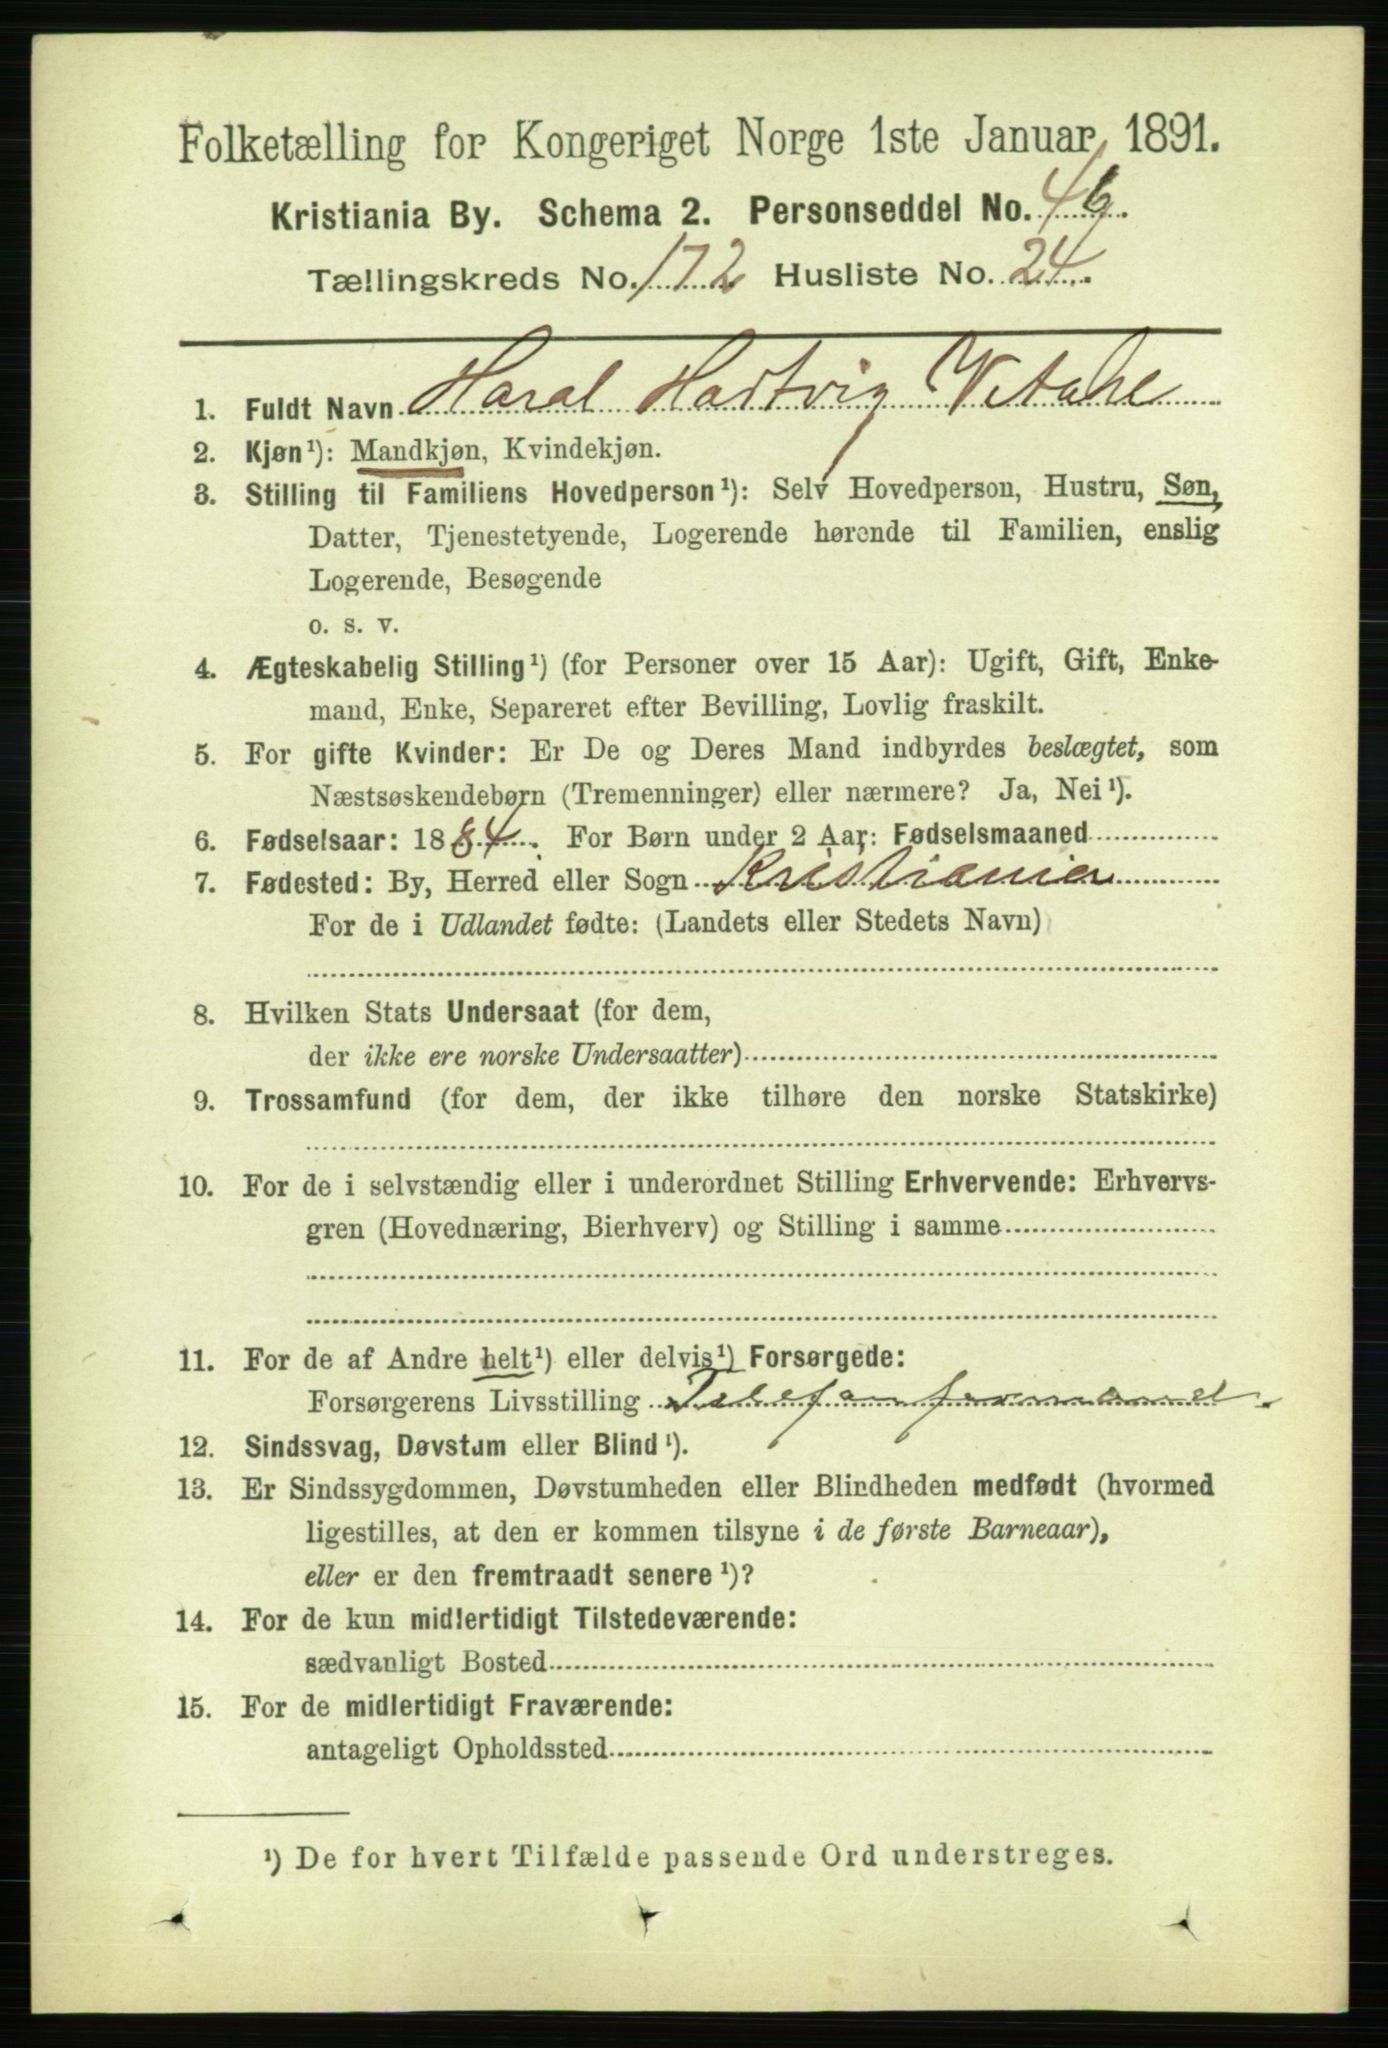 Folketælling for Kongeriget Norge 1ste Januar 1891.
Kristiania By. Schema 2. Personseddel No. 46.
Tællingskreds No. 172 Husliste No. 24.
1. Fuldt Navn Haral Hartvig
2. Kjøn¹): Mandkjøn, Kvindekjøn.
3. Stilling til Familiens Hovedperson¹): Selv Hovedperson, Hustru, Søn,
Datter, Tjenestetyende, Logerende hørende til Familien, enslig
Logerende, Besøgende
o. s. v.
4. Ægteskabelig Stilling¹) (for Personer over 15 Aar): Ugift, Gift, Enke-
mand, Enke, Separeret efter Bevilling, Lovlig fraskilt.
5. For gifte Kvinder: Er De og Deres Mand indbyrdes beslægtet, som
Næstsøskendebørn (Tremenninger) eller nærmere? Ja, Nei¹).
6. Fødselsaar: 1884. For Børn under 2 Aar: Fødselsmaaned
7. Fødested: By, Herred eller Sogn Kristiania
For de i Udlandet fødte: (Landets eller Stedets Navn)
8. Hvilken Stats Undersaat (for dem,
der ikke ere norske Undersaatter)
9. Trossamfund (for dem, der ikke tilhøre den norske Statskirke)
10. For de i selvstændig eller i underordnet Stilling Erhvervende: Erhvervs-
gren (Hovednæring, Bierhverv) og Stilling i samme
11. For de af Andre helt¹) eller delvis¹) Forsørgede:
Forsørgerens Livsstilling Telefonformand.
12. Sindssvag, Døvstum eller Blind¹).
13. Er Sindssygdommen, Døvstumheden eller Blindheden medfødt (hvormed
ligestilles, at den er kommen tilsyne i de første Barneaar),
eller er den fremtraadt senere¹)?
14. For de kun midlertidigt Tilstedeværende:
sædvanligt Bosted
15. For de midlertidigt Fraværende:
antageligt Opholdssted
¹) De for hvert Tilfælde passende Ord understreges.